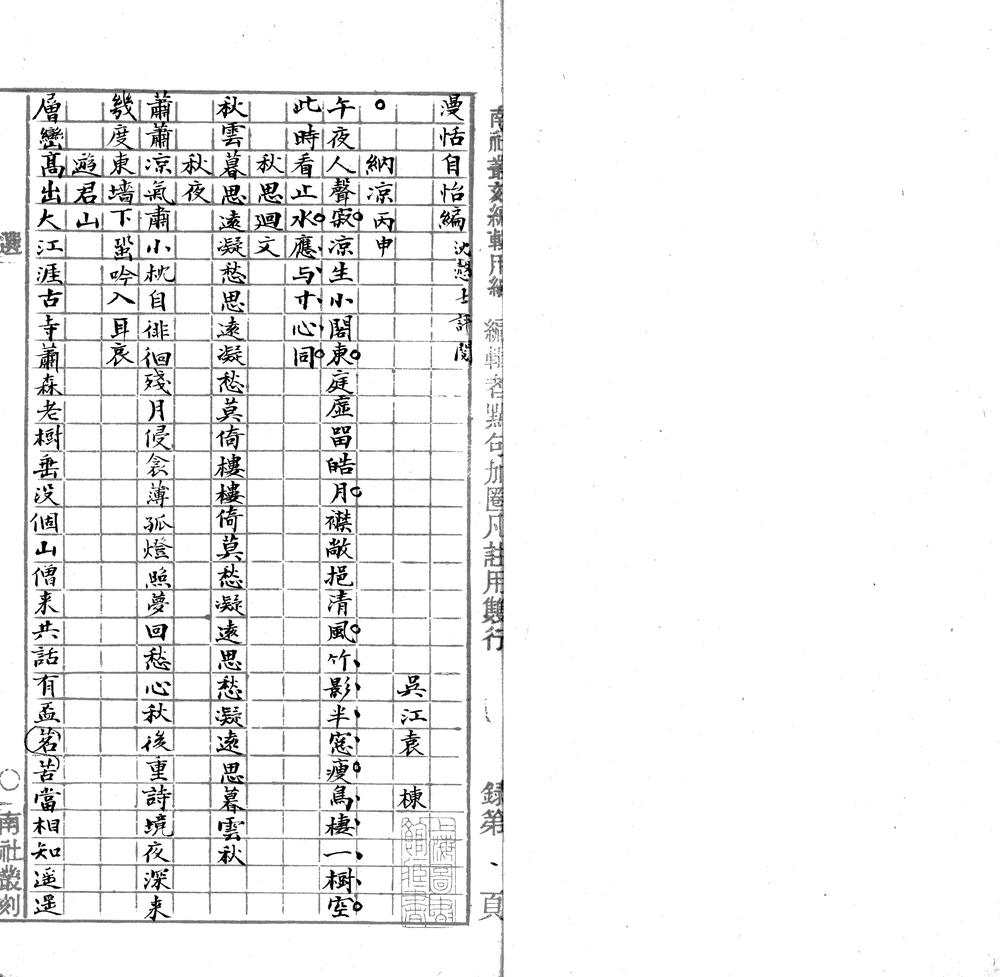 南社叢刻編輯用紙　編輯者點句加圈凡註用雙行　錄第、頁
漫恬自怡編　沈懿士評閱
吳江袁　棟
上海圖書館藏書
納凉丙申
午夜人聲寂。凉生小閣東。庭虛留皓月。襟敞挹清風。竹影半窓瘦。鳥棲一樹空。
此時看止水。應与寸心同。
秋思廻文
秋雲暮思遠凝愁思遠凝愁莫倚樓樓倚莫愁凝遠思愁凝遠思暮雲秋
秋夜
蕭蕭凉氣肅小枕自徘徊殘月侵衾薄孤燈照夢回愁心秋後重詩境夜深来
幾度東墻下蛩吟入耳哀
遊君山
層巒高出大江涯古寺蕭森老樹垂没個山僧来共話有盃茗苦當相知遥遥
選
〇南社叢刻